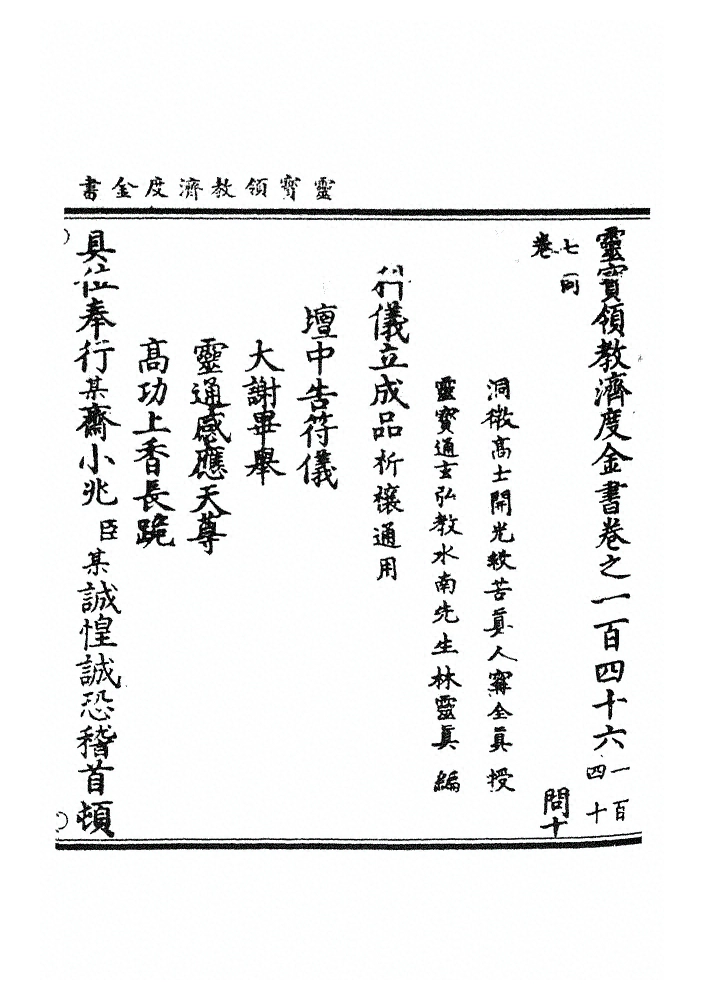 靈寶領教濟度金書
靈寶領教濟度金書卷之一百四十六一百四十
七同卷
問十
洞微高士開光救苦真人甯全真授
靈寶通玄弘教水南先生林靈真編
科儀立成品祈禳通用
壇中告符儀
大謝畢舉
靈通感應天尊
高功上香長跪
具位奉行某齋小兆臣某誠惶誠恐稽首頓